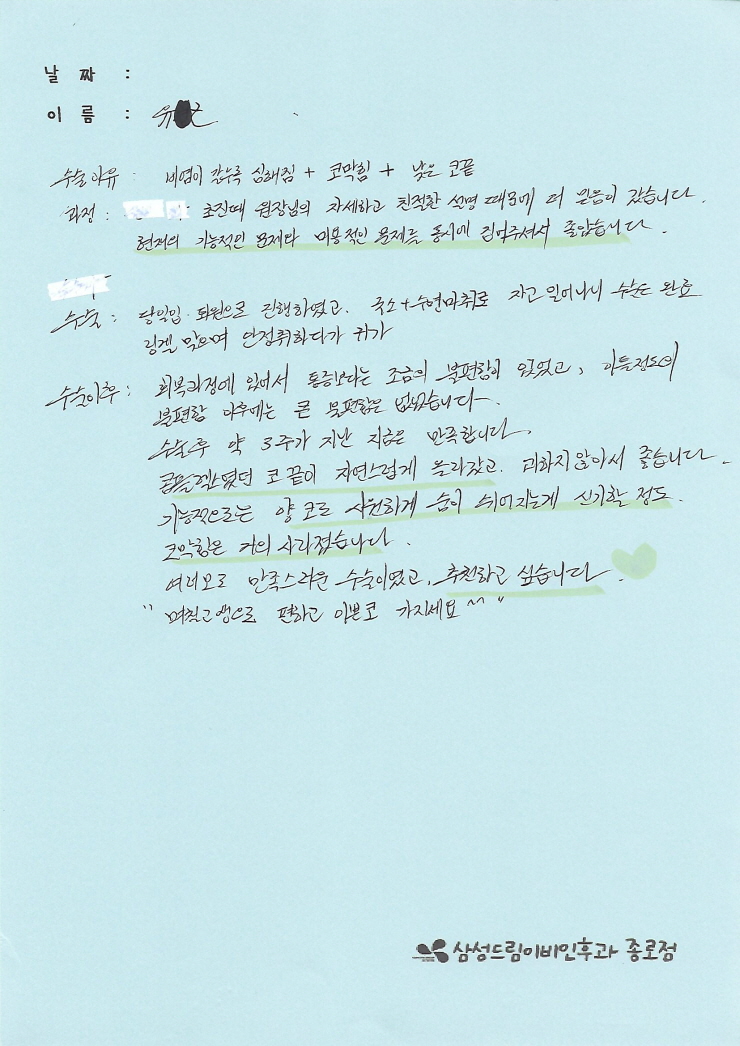 날 짜 :
이 름 : 유
수술이유 : 비염이 갈수록 심해짐 + 코막힘 + 낮은 코끝
과정 : 초진때 원장님의 자세하고 친절한 설명 때문에 더 믿음이 갔습니다.
현재의 기능적인 문제와 미용적인 문제를 동시에 집어주셔서 좋았습니다.
수술 : 당일입·퇴원으로 진행하였고. 국소+수면마취로 자고 일어나니 수술은 완료
링겔 맞으며 안정취하다가 귀가
수술이후 : 회복과정에 있어서 통증보다는 조금의 불편함이 있었고, 이틀정도의
불편함 이후에는 큰 불편함은 없었습니다.
수술후 약 3주가 지난 지금은 만족합니다.
콤플렉스였던 코 끝이 자연스럽게 올라갔고. 과하지않아서 좋습니다.
기능적으로는 양 코로 시원하게 숨이 쉬어지는게 신기할 정도.
코막힘은 거의 사라졌습니다.
여러모로 만족스러운 수술이였고, 추천하고 싶습니다.
" 며칠고생으로 편하고 이쁜코 가지세요 ^^ "
삼성드림이비인후과 종로점